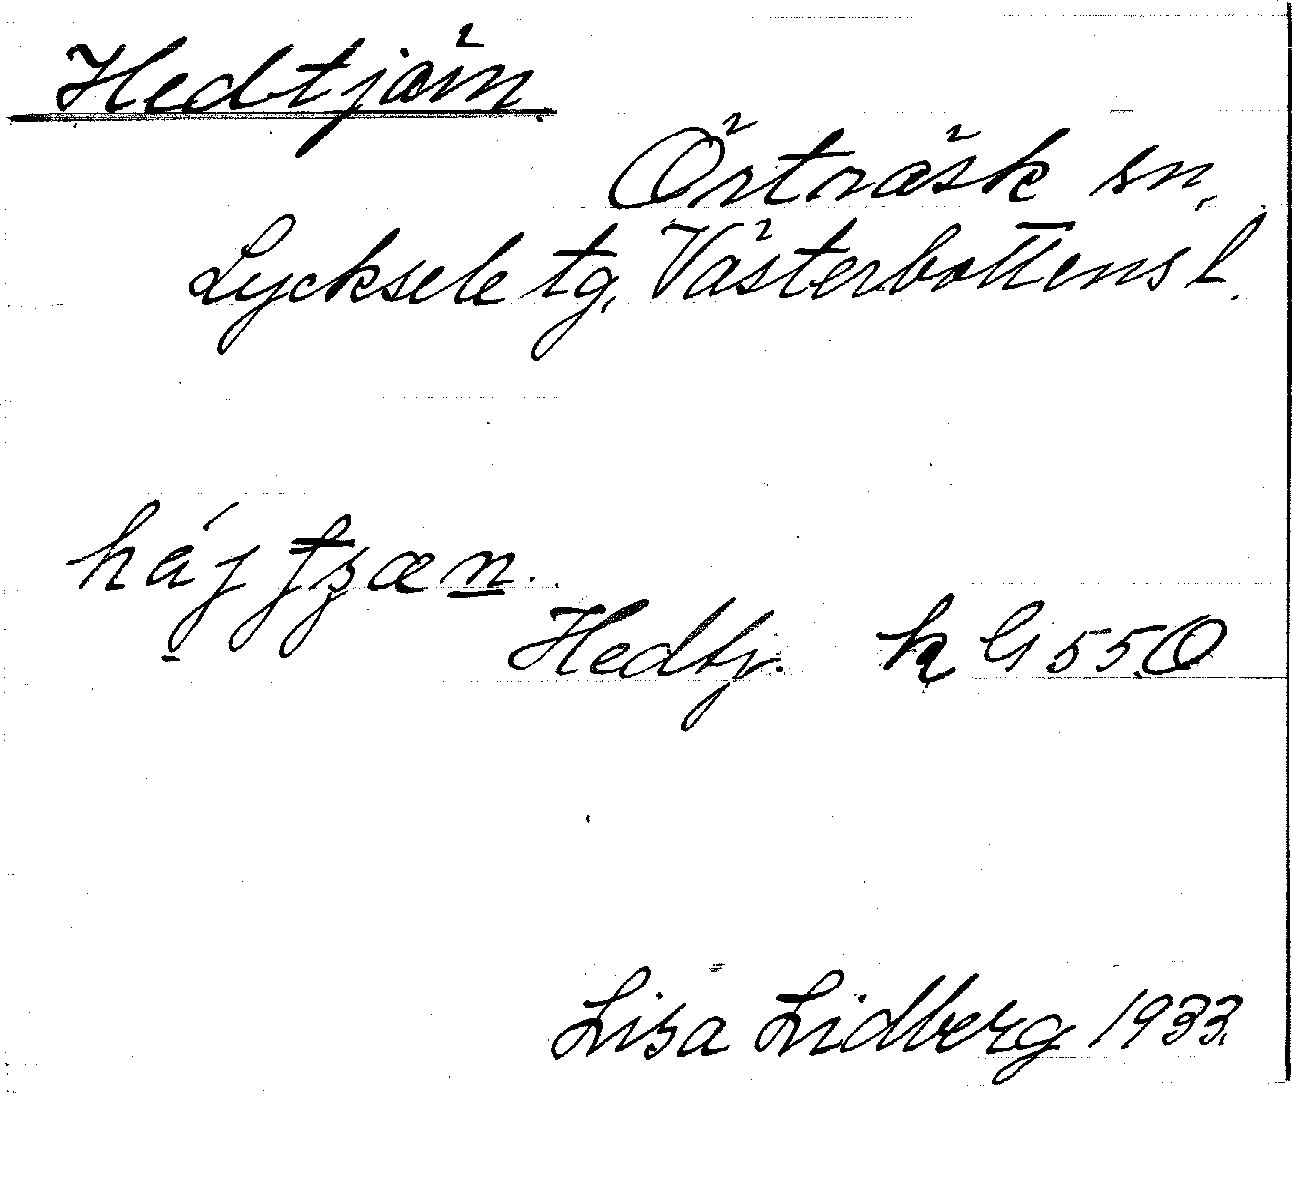 Hedtjärn
Örträsk sn,
Lycksele tg, Västerbottens l.
Hedtj. k G 550
Lisa Lidberg 1933.